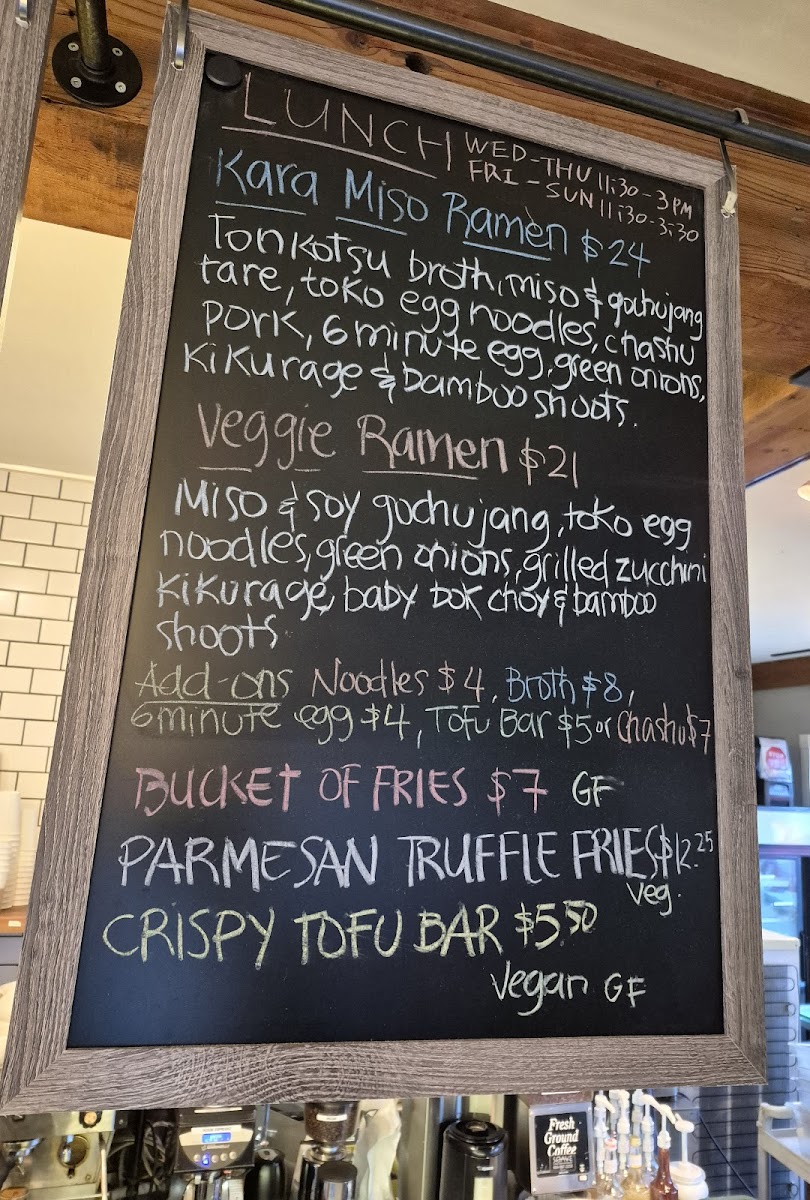 LUNCH WED-THU 11:30-3PM
FRI-SUN 11:30-3:30
Kara Miso Ramen $24
Tonkotsu broth, miso & gochujang
tare, toko egg noodles, chashu
pork, 6 minute egg, green onions,
Kikurage & bamboo shoots.
Veggie Ramen $21
Miso & soy gochujang, toko egg
noodles, green onions, grilled zucchini
Kikurage, baby bok choy & bamboo
shoots
Add-ons Noodles $4, Broth $8,
6 minute egg $4, Tofu Bar $5 or Chashu $7
BUCKET OF FRIES $7 GF
PARMESAN TRUFFLE FRIES $12.25
veg.
CRISPY TOFU BAR $5.50
Vegan GF
Fresh
Ground
Coffee